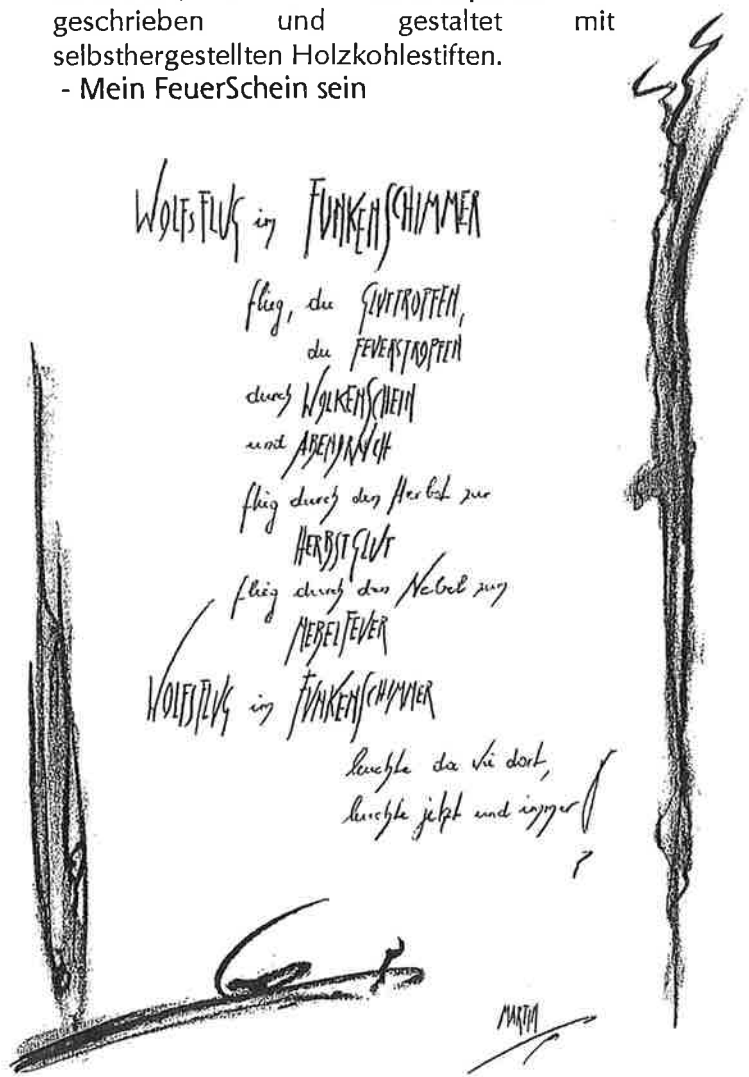 geschrieben und gestaltet mit
selbsthergestellten Holzkohlestiften.
- Mein FeuerSchein sein
WOLFSFLUG im FUNKENSCHIMMER
flieg, du GLUTTROPFEN,
du FEUERSTROPFEN
durch WOLKENSCHEIN
und ABENDRAUCH
flieg durch den Herbst zur
HERBSTGLUT
flieg durch den Nebel zum
NEBELFEUER
WOLFSFLUG im FUNKENSCHIMMER
leuchte da wie dort,
leuchte jetzt und immer!
MARTIN